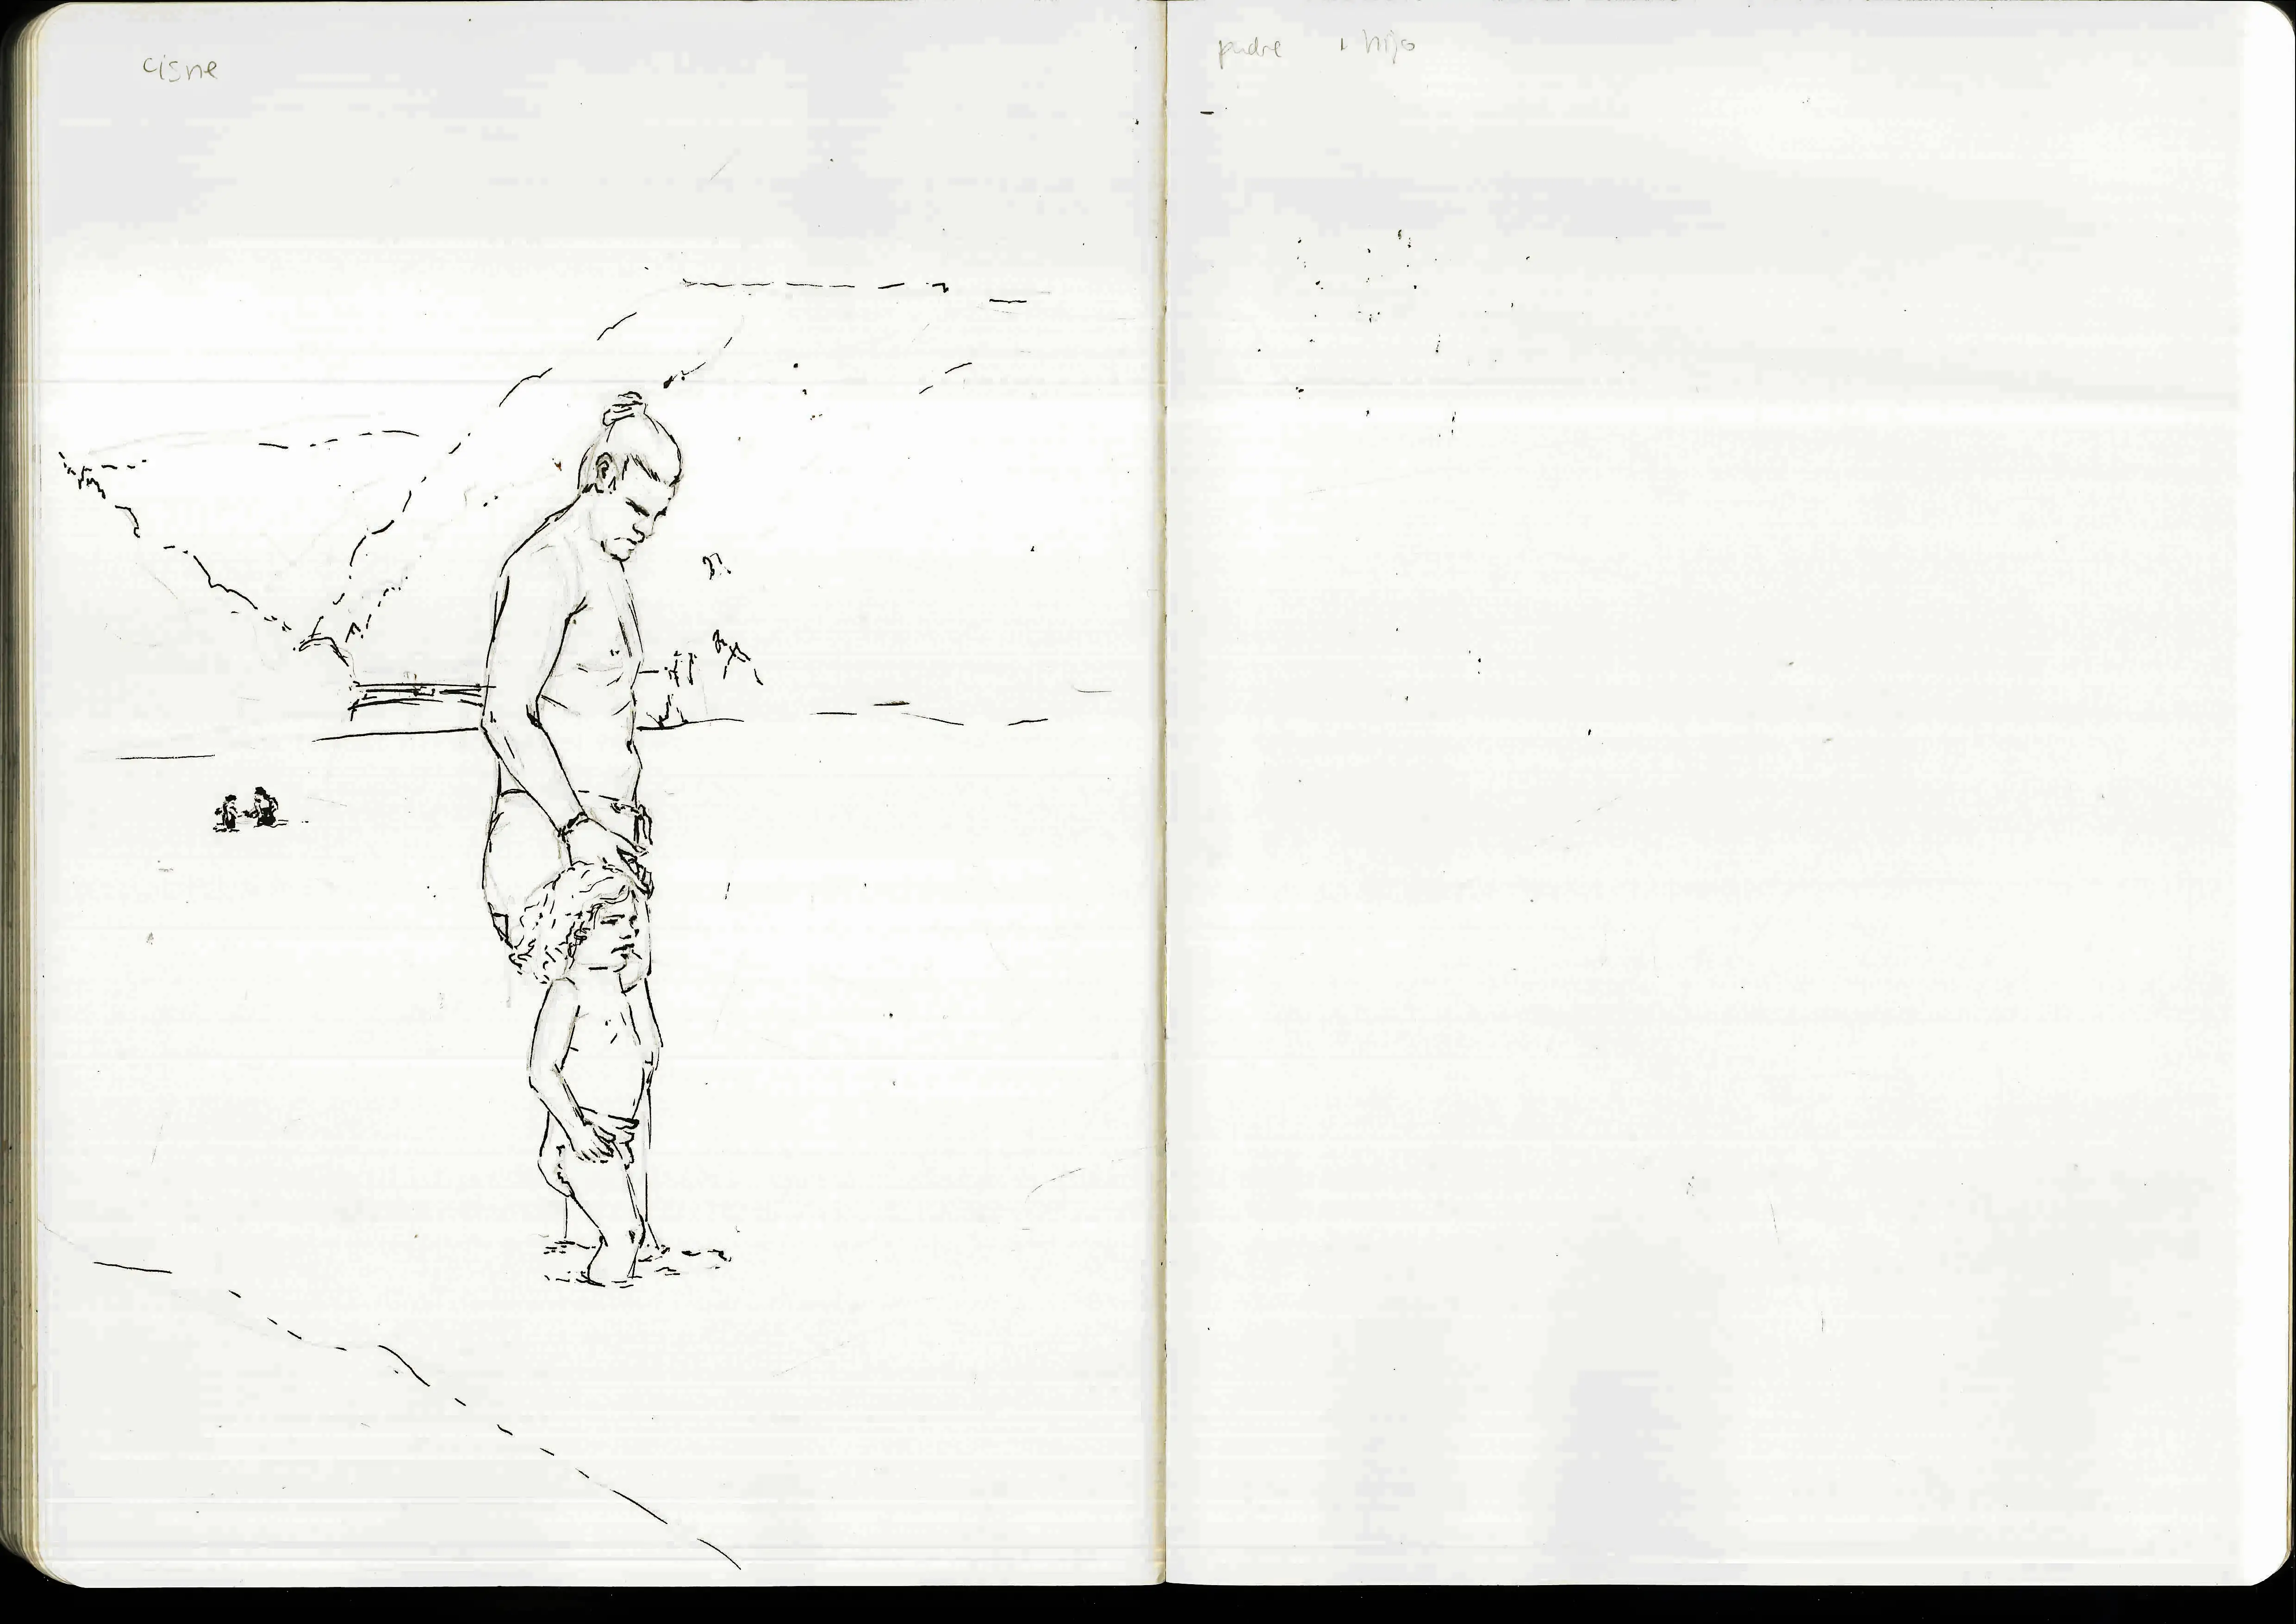 cisne
padre i hijo